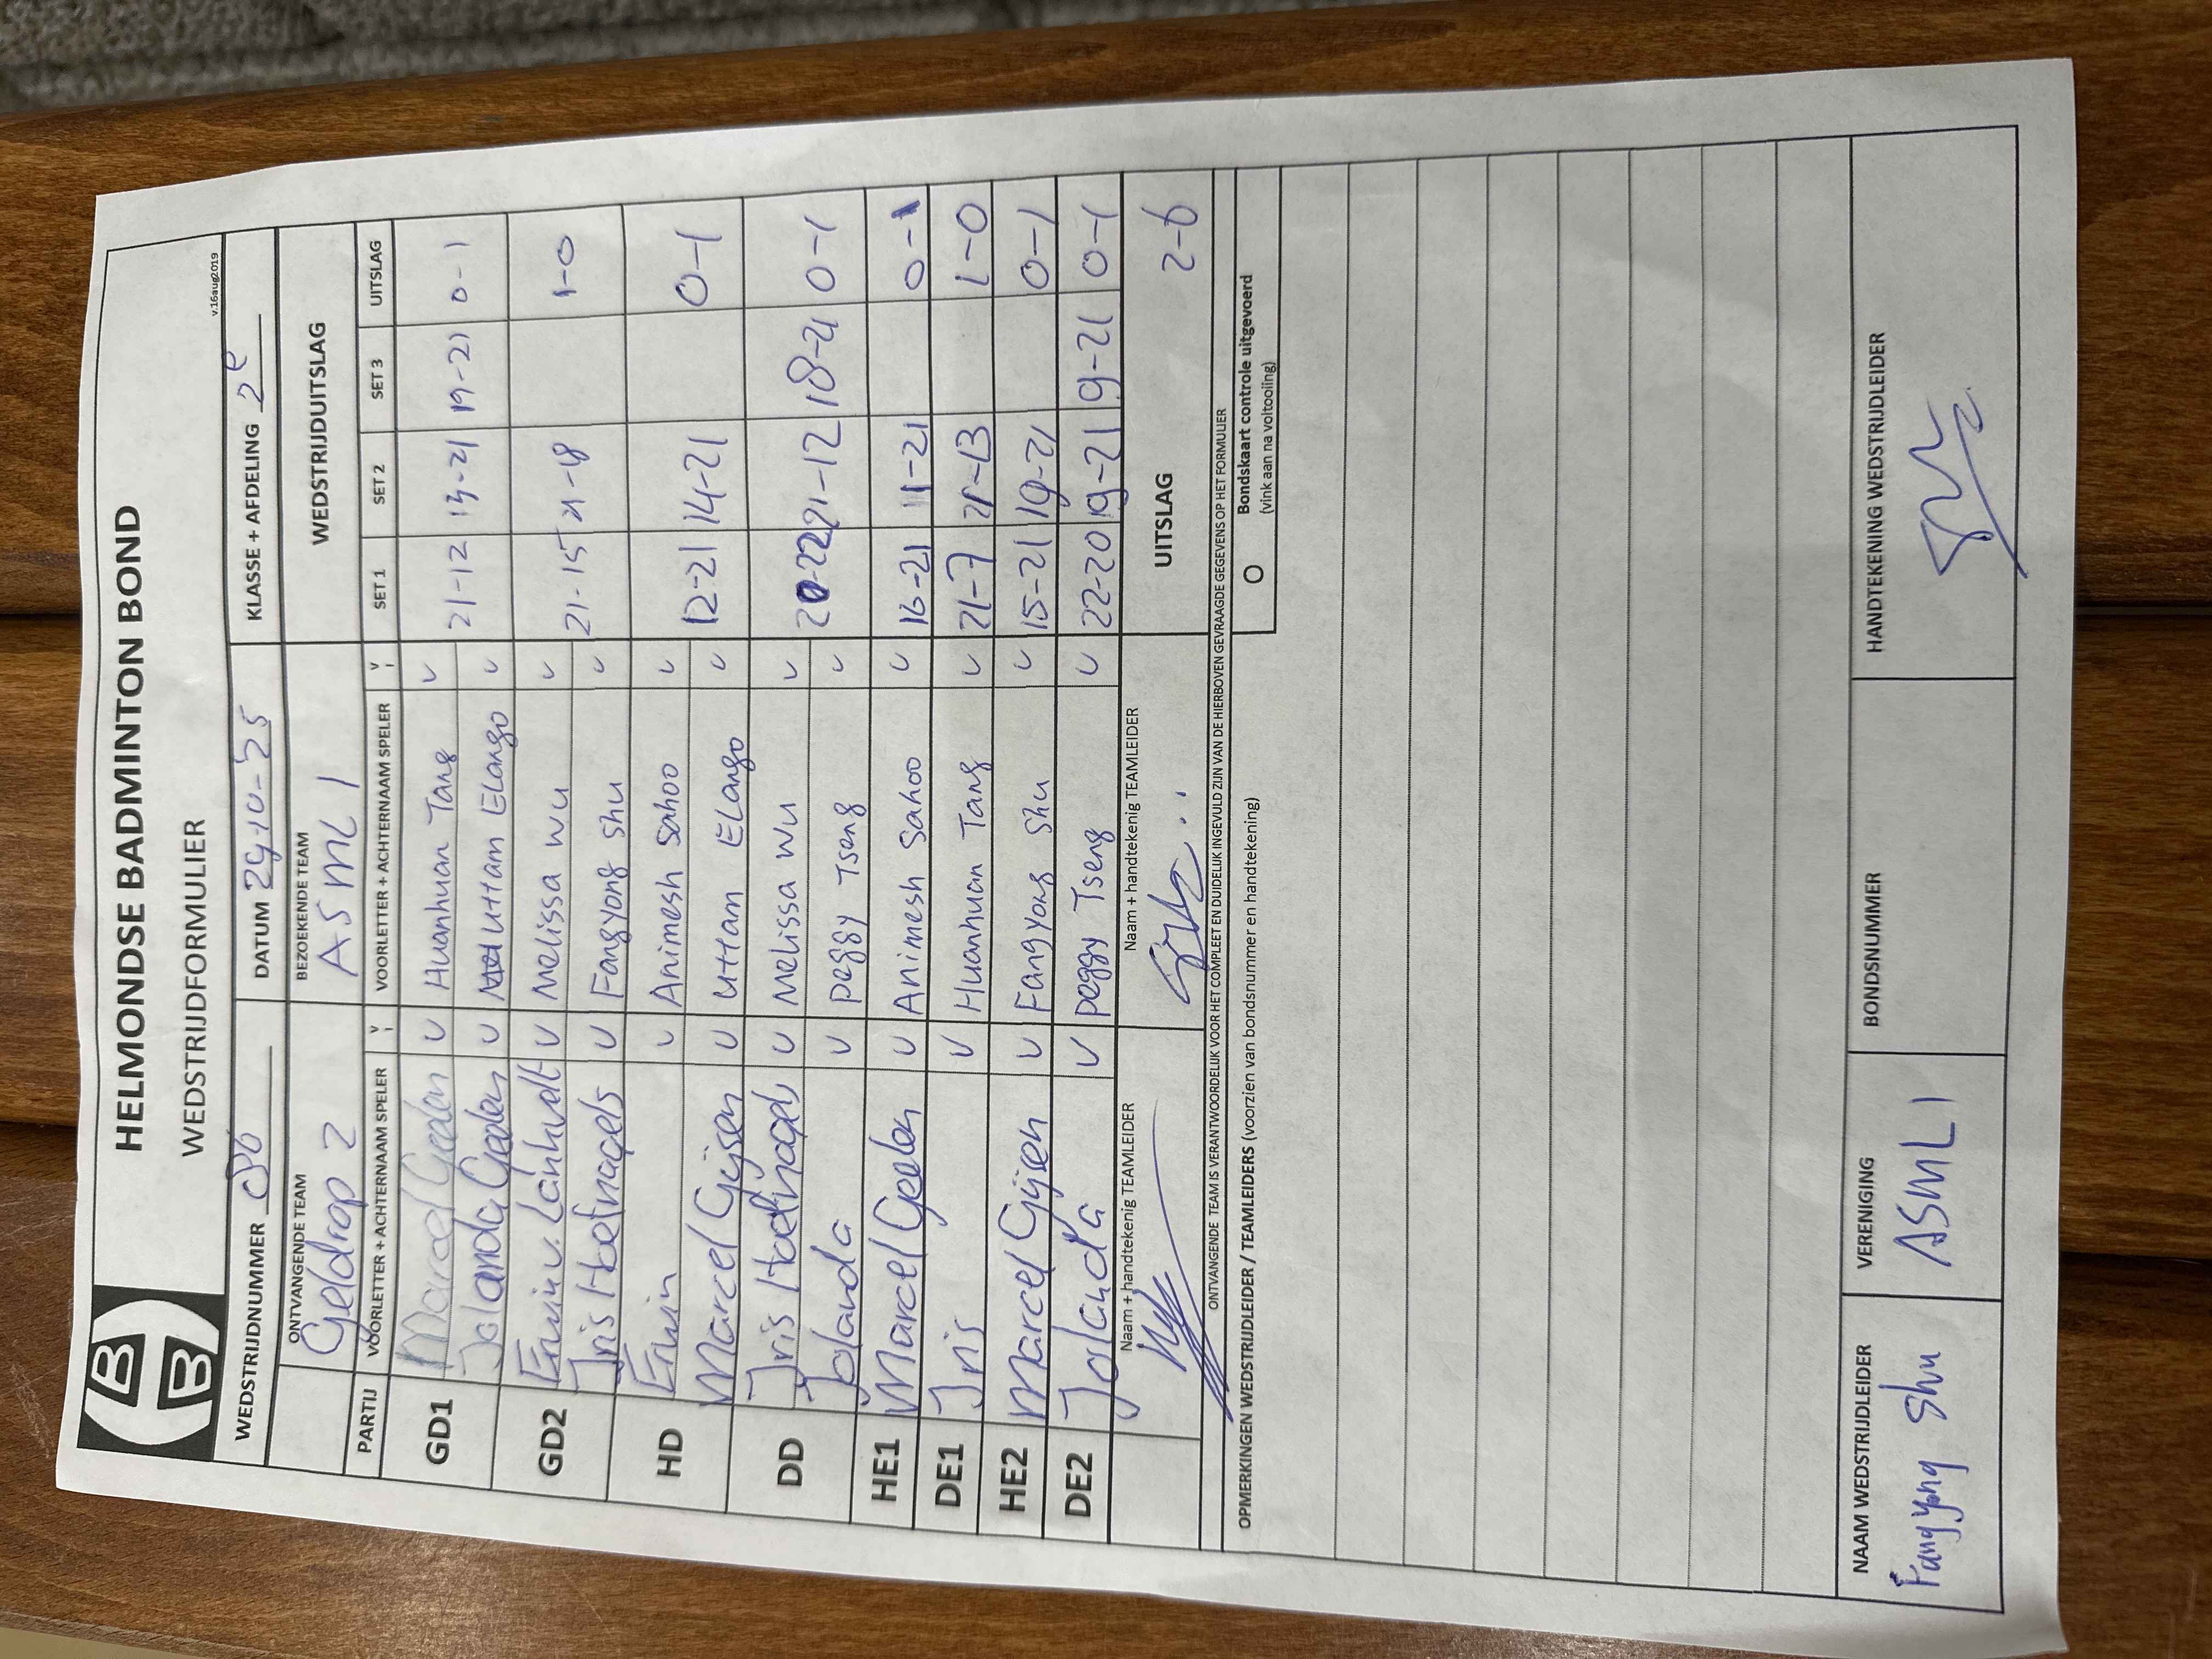 HELMONDSE BADMINTON BOND
WEDSTRIJDFORMULIER
v.16aug2019
WEDSTRIJDNUMMER DATUM 29-10-25 KLASSE + AFDELING 2e
ONTVANGENDE TEAM BEZOEKENDE TEAM WEDSTRIJDUITSLAG
Geldrop 2 ASML 1
PARTIJ VOORLETTER + ACHTERNAAM SPELER V VOORLETTER + ACHTERNAAM SPELER V SET 1 SET 2 SET 3 UITSLAG
GD1 Marcel Geelen v Huanhuan Tang v
Jolanda Geelen v Uttam Elango v 21-12 13-21 19-21 0-1
GD2 Erwin v. v Melissa Wu v
Iris Hoefnagels v Fangyong Shu v 21-15 21-18 1-0
HD Erwin v Animesh Sahoo v
Marcel Gijsen v Uttam Elango v 12-21 14-21 0-1
DD Iris Hoefnagels v Melissa Wu v
Jolanda v Peggy Tseng v 20-22 21-12 18-21 0-1
HE1 Marcel Geelen v Animesh Sahoo v 16-21 11-21 0-1
DE1 Iris v Huanhuan Tang v 21-7 21-13 1-0
HE2 Marcel Gijsen v Fangyong Shu v 15-21 19-21 0-1
DE2 Jolanda v Peggy Tseng v 22-20 19-21 19-21 0-1
Naam + handtekenig TEAMLEIDER Naam + handtekenig TEAMLEIDER UITSLAG 2-6
ONTVANGENDE TEAM IS VERANTWOORDELIJK VOOR HET COMPLEET EN DUIDELIJK INGEVULD ZIJN VAN DE HIERBOVEN GEVRAAGDE GEGEVENS OP HET FORMULIER
OPMERKINGEN WEDSTRIJDLEIDER / TEAMLEIDERS (voorzien van bondsnummer en handtekening) O Bondskaart controle uitgevoerd
(vink aan na voltooiing)
NAAM WEDSTRIJDLEIDER VERENIGING BONDSNUMMER HANDTEKENING WEDSTRIJDLEIDER
Fangyong Shu ASML 1